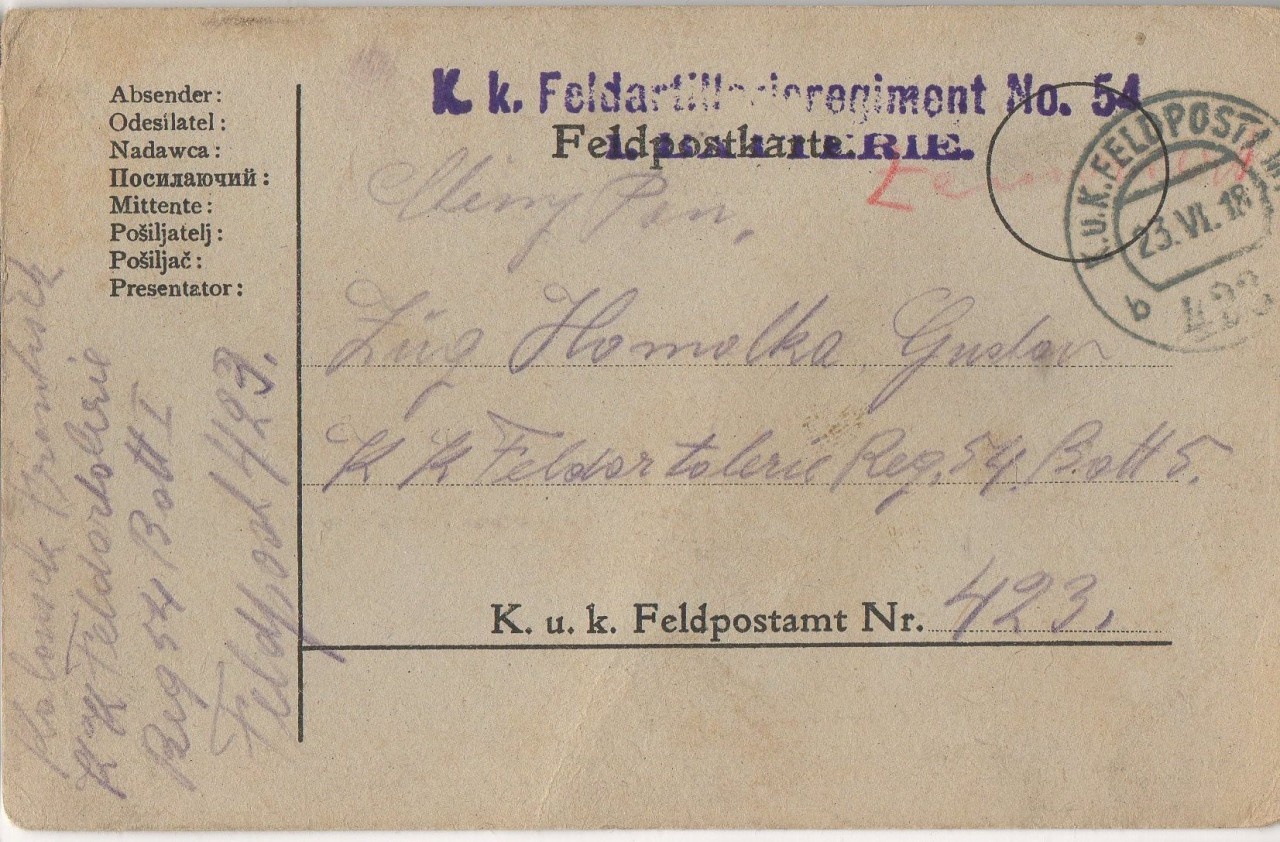 Absender:
Odesílatel:
Nadawca:
Посилаючий:
Mittente:
Pošiljatelj:
Pošiljač:
Presentator:
K. k. Feldartillerieregiment No. 54
Feldpostkarte.
1. BATTERIE.
K.U.K. FELDPOSTAM
23. VI. 18
b 423
Pan,
Züg Homolka Gustav
K K Feldartalerie Reg. 54. Batt 5.
K. u. k. Feldpostamt Nr. 423.
František
K K Feldartolerie
Reg 54 Batt I
Feldpost 423.